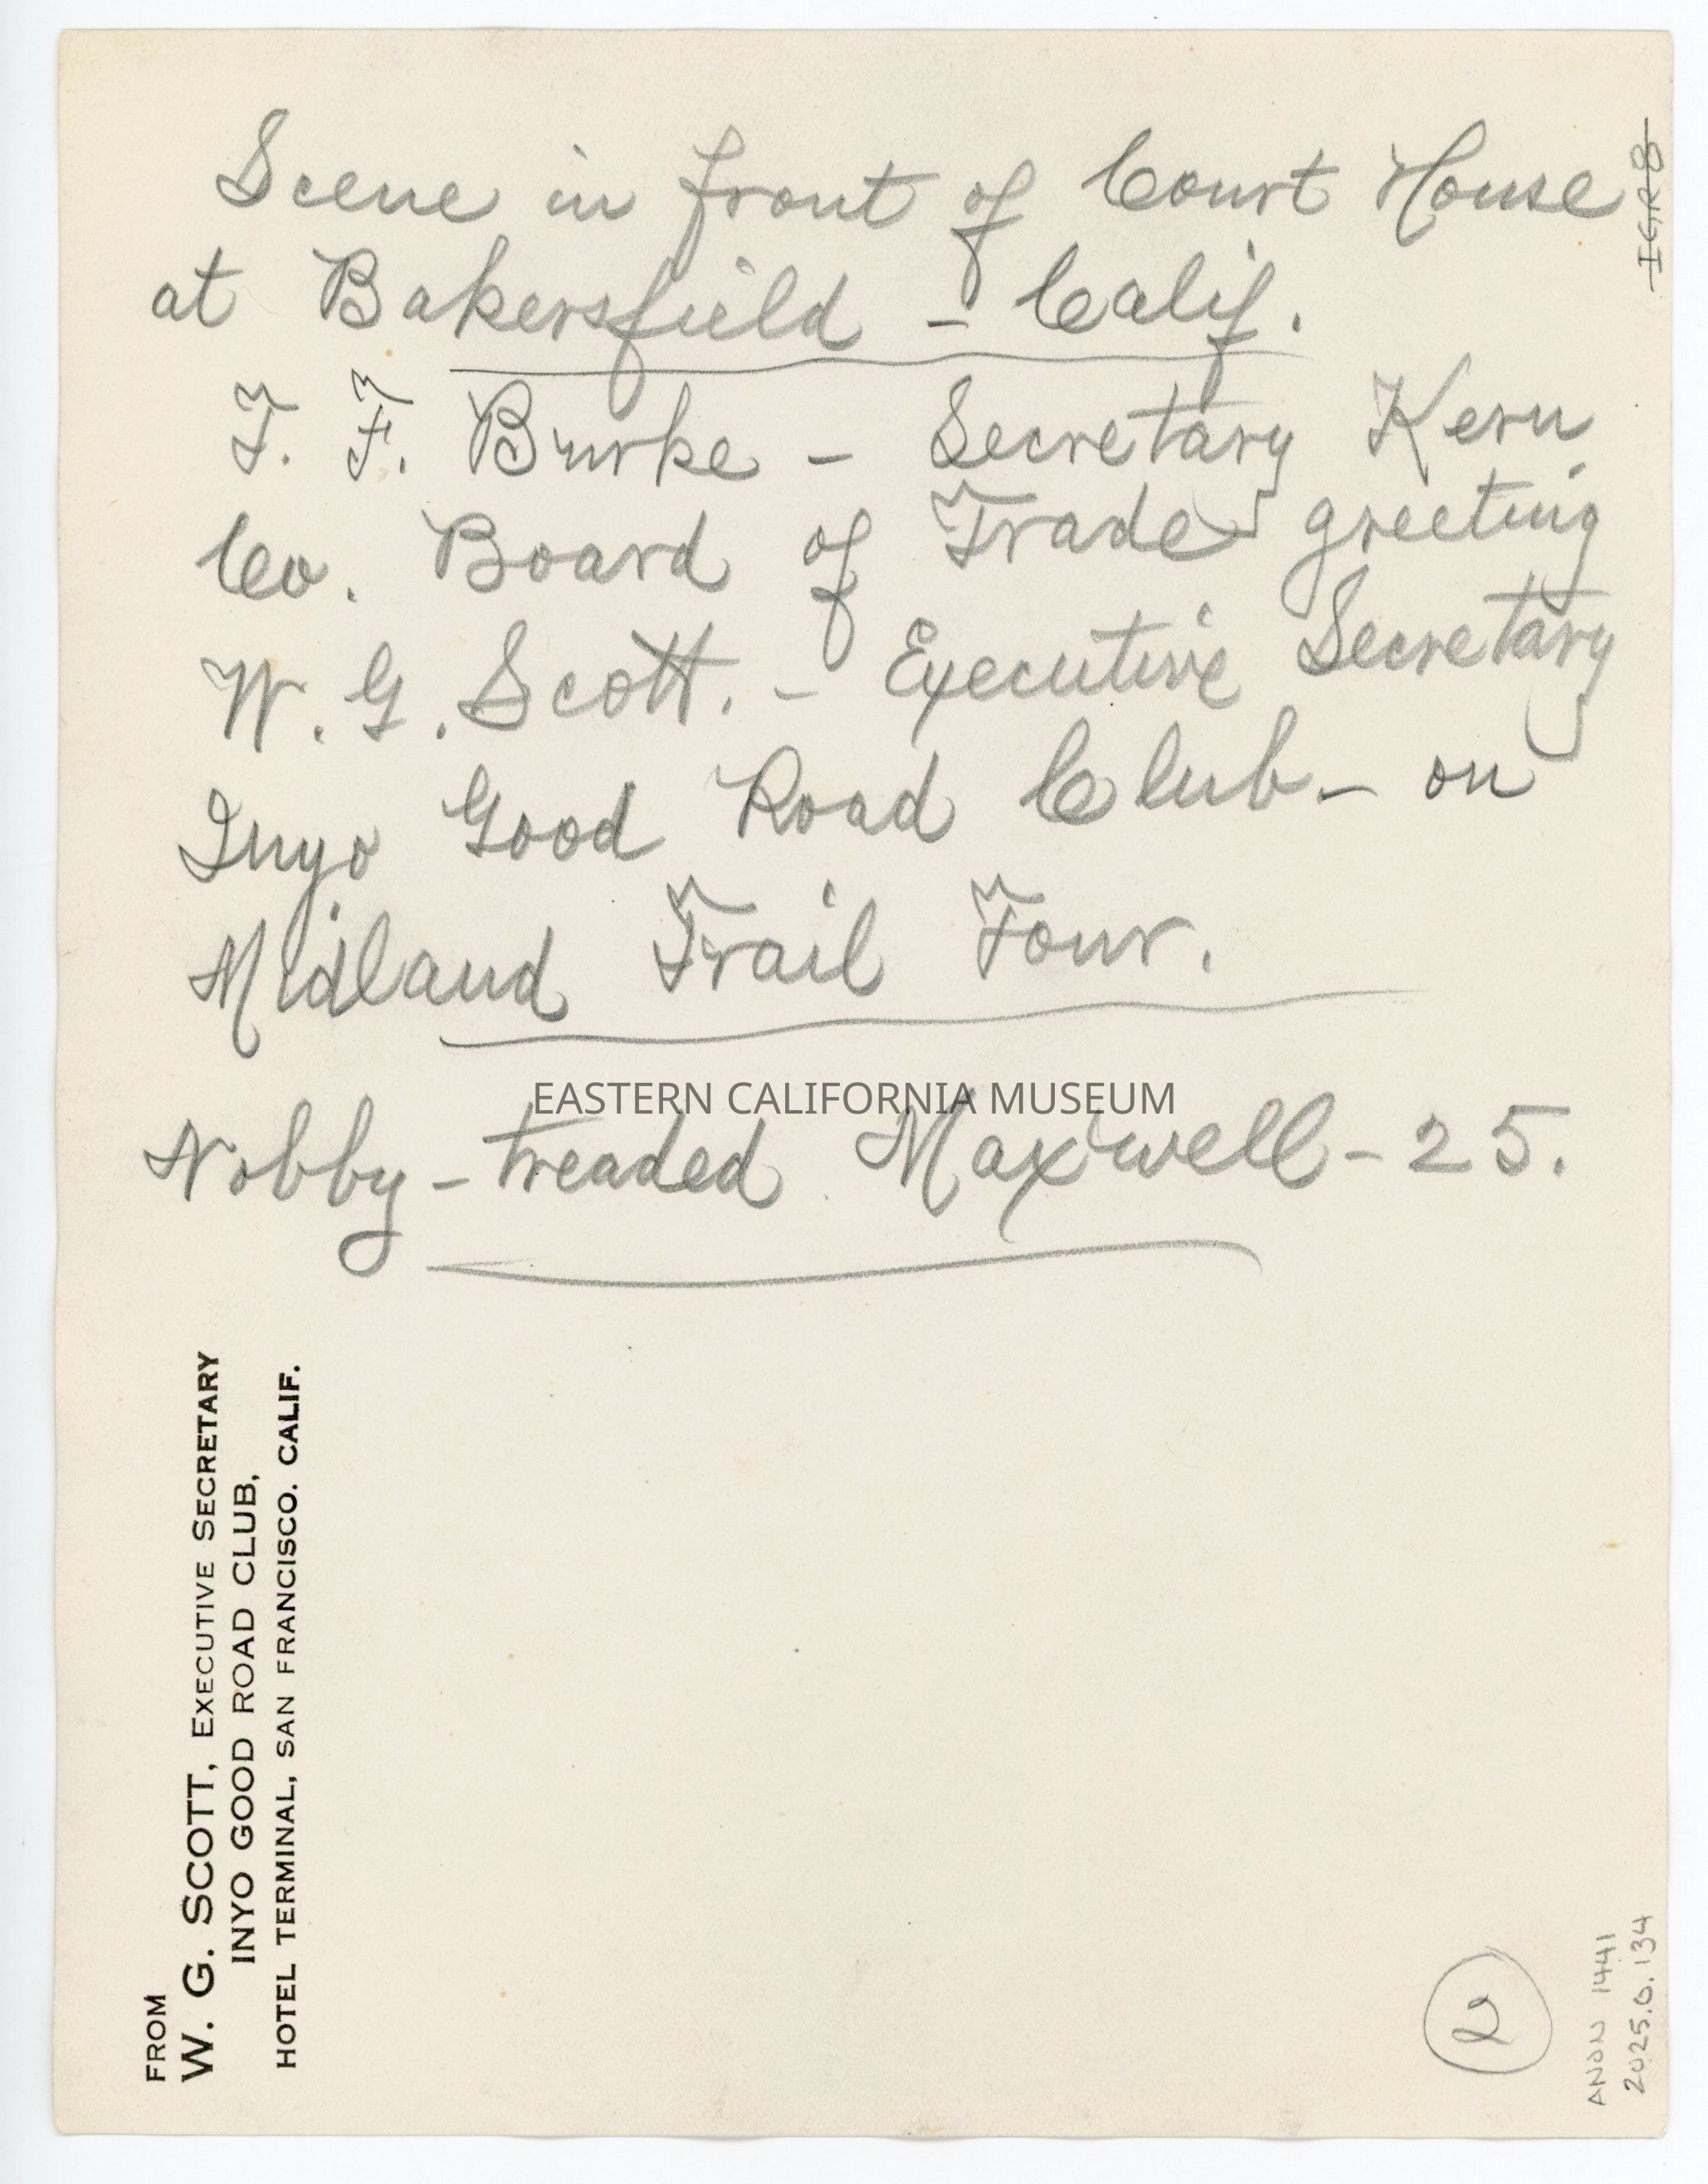 Scene in front of Court House
at Bakersfield - Calif.
T. F. Burke - Secretary Kern
Co. Board of Trade greeting
W. G. Scott. - Executive Secretary
Inyo Good Road Club - on
Midland Trail Tour.
EASTERN CALIFORNIA MUSEUM
Nobby - treaded Maxwell - 25.
FROM
W. G. SCOTT, EXECUTIVE SECRETARY
INYO GOOD ROAD CLUB,
HOTEL TERMINAL, SAN FRANCISCO. CALIF.
IGR8
2
ANON 1441
2025.0.134